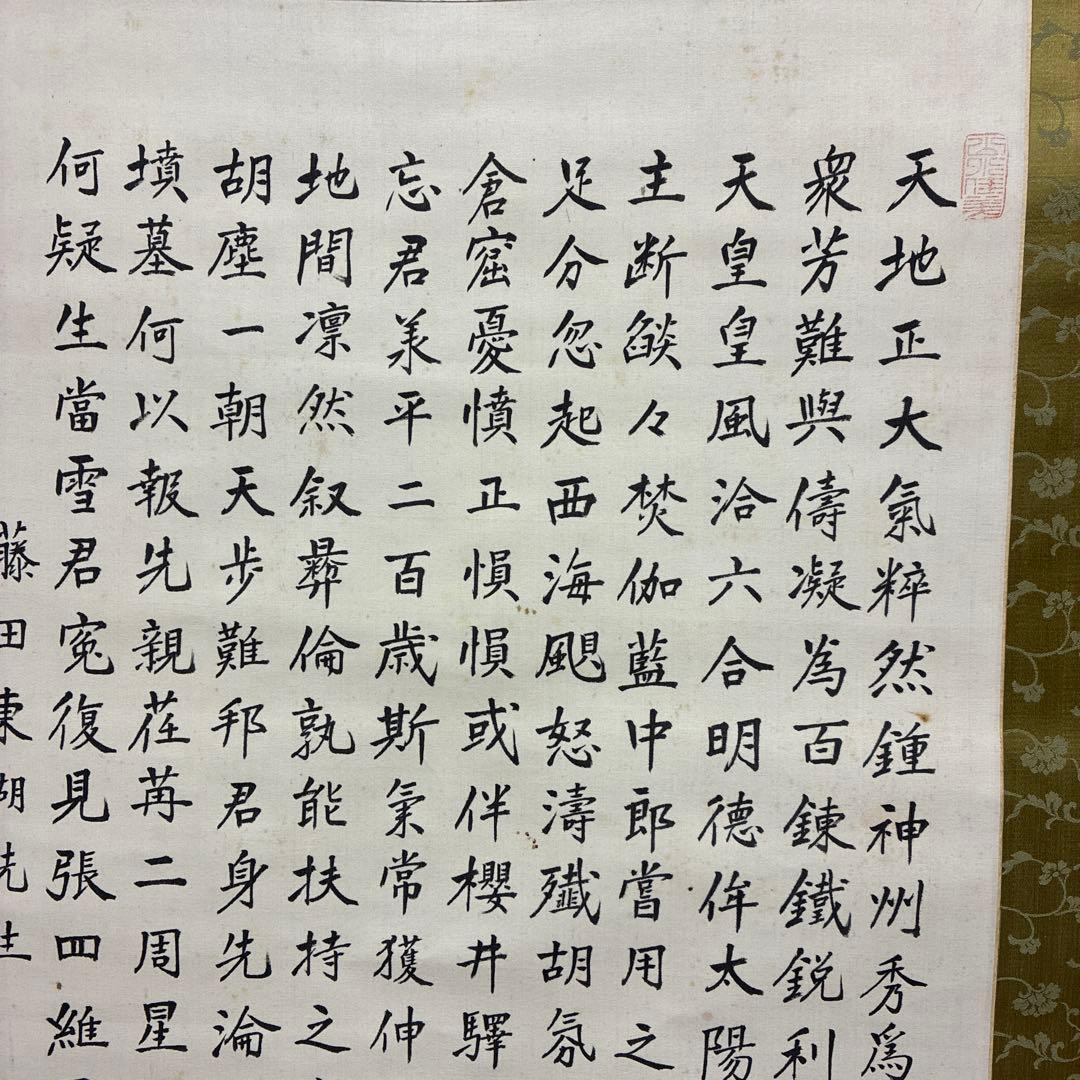 天地正大氣粹然鍾神州秀爲
衆芳難與儔凝為百鍊鐵鋭利
天皇皇風洽六合明德侔太陽
主断燄々焚伽藍中郎嘗用之
足分忽起西海颶怒濤殲胡氛
倉窟憂憤正愪愪或伴櫻井驛
忘君羕平二百歳斯氣常獲伸
地間凛然叙彝倫孰能扶持之
胡塵一朝天步難邦君身先淪
墳墓何以報先親荏苒二周星
何疑生當雪君冤復見張四維
藤田東湖先生